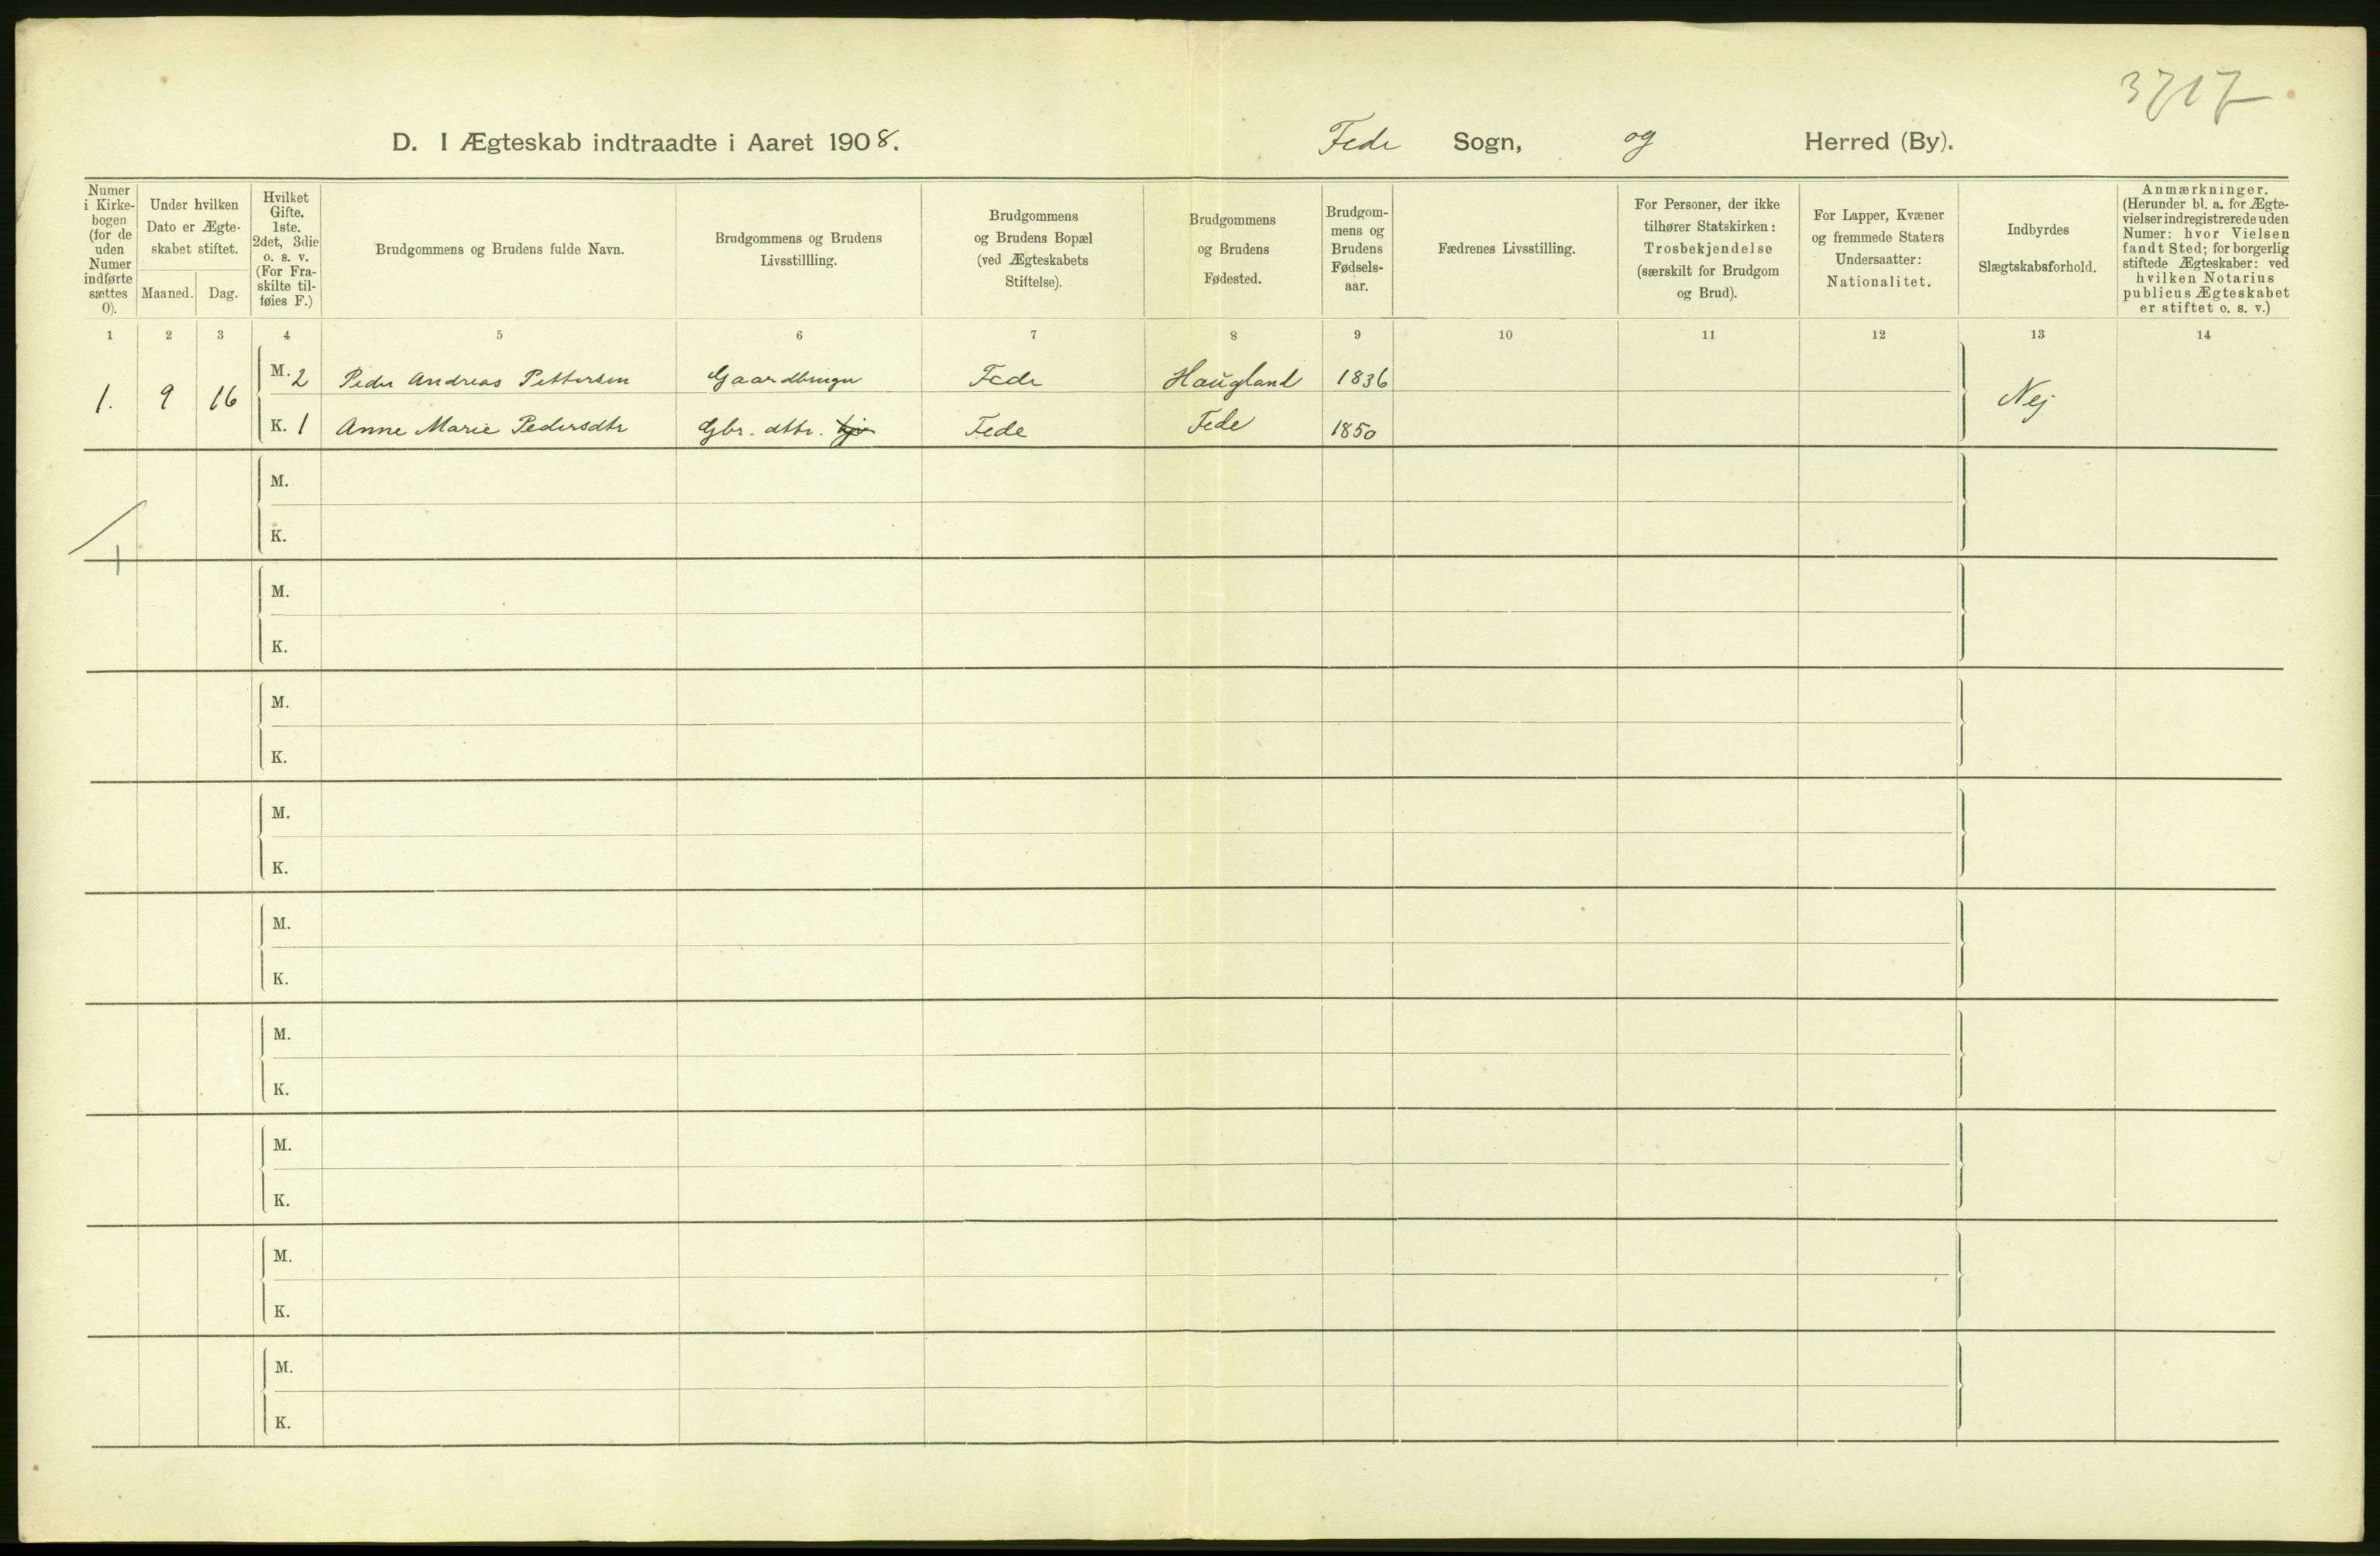 3717
D. I Ægteskab indtraadte i Aaret 1908. Fede Sogn, og Herred (By).
Numer i Kirkebogen (for de uden Numer indførte sættes 0).
Under hvilken Dato er Ægteskabet stiftet.
Maaned. Dag.
Hvilket Gifte. 1ste. 2det, 3die o. s. v. (For Fraskilte tilføies F.)
Brudgommens og Brudens fulde Navn.
Brudgommens og Brudens Livsstillling.
Brudgommens og Brudens Bopæl (ved Ægteskabets Stiftelse).
Brudgommens og Brudens Fødested.
Brudgommens og Brudens Fødselsaar.
Fædrenes Livsstilling.
For Personer, der ikke tilhører Statskirken: Trosbekjendelse (særskilt for Brudgom og Brud).
For Lapper, Kvæner og fremmede Staters Undersaatter: Nationalitet.
Indbyrdes Slægtskabsforhold.
Anmærkninger. (Herunder bl. a. for Ægtevielser indregistrerede uden Numer: hvor Vielsen fandt Sted; for borgerlig stiftede Ægteskaber: ved hvilken Notarius publicus Ægteskabet er stiftet o. s. v.)
1 2 3 4 5 6 7 8 9 10 11 12 13 14
1. 9 16 M. 2 Peder Andreas Pettersen Gaardbruger Fede Haugland 1836 Nej
K. 1 Anne Marie Pedersdtr Gbr. dttr. Fede Fede 1850
M.
K.
1
M.
K.
M.
K.
M.
K.
M.
K.
M.
K.
M.
K.
M.
K.
M.
K.